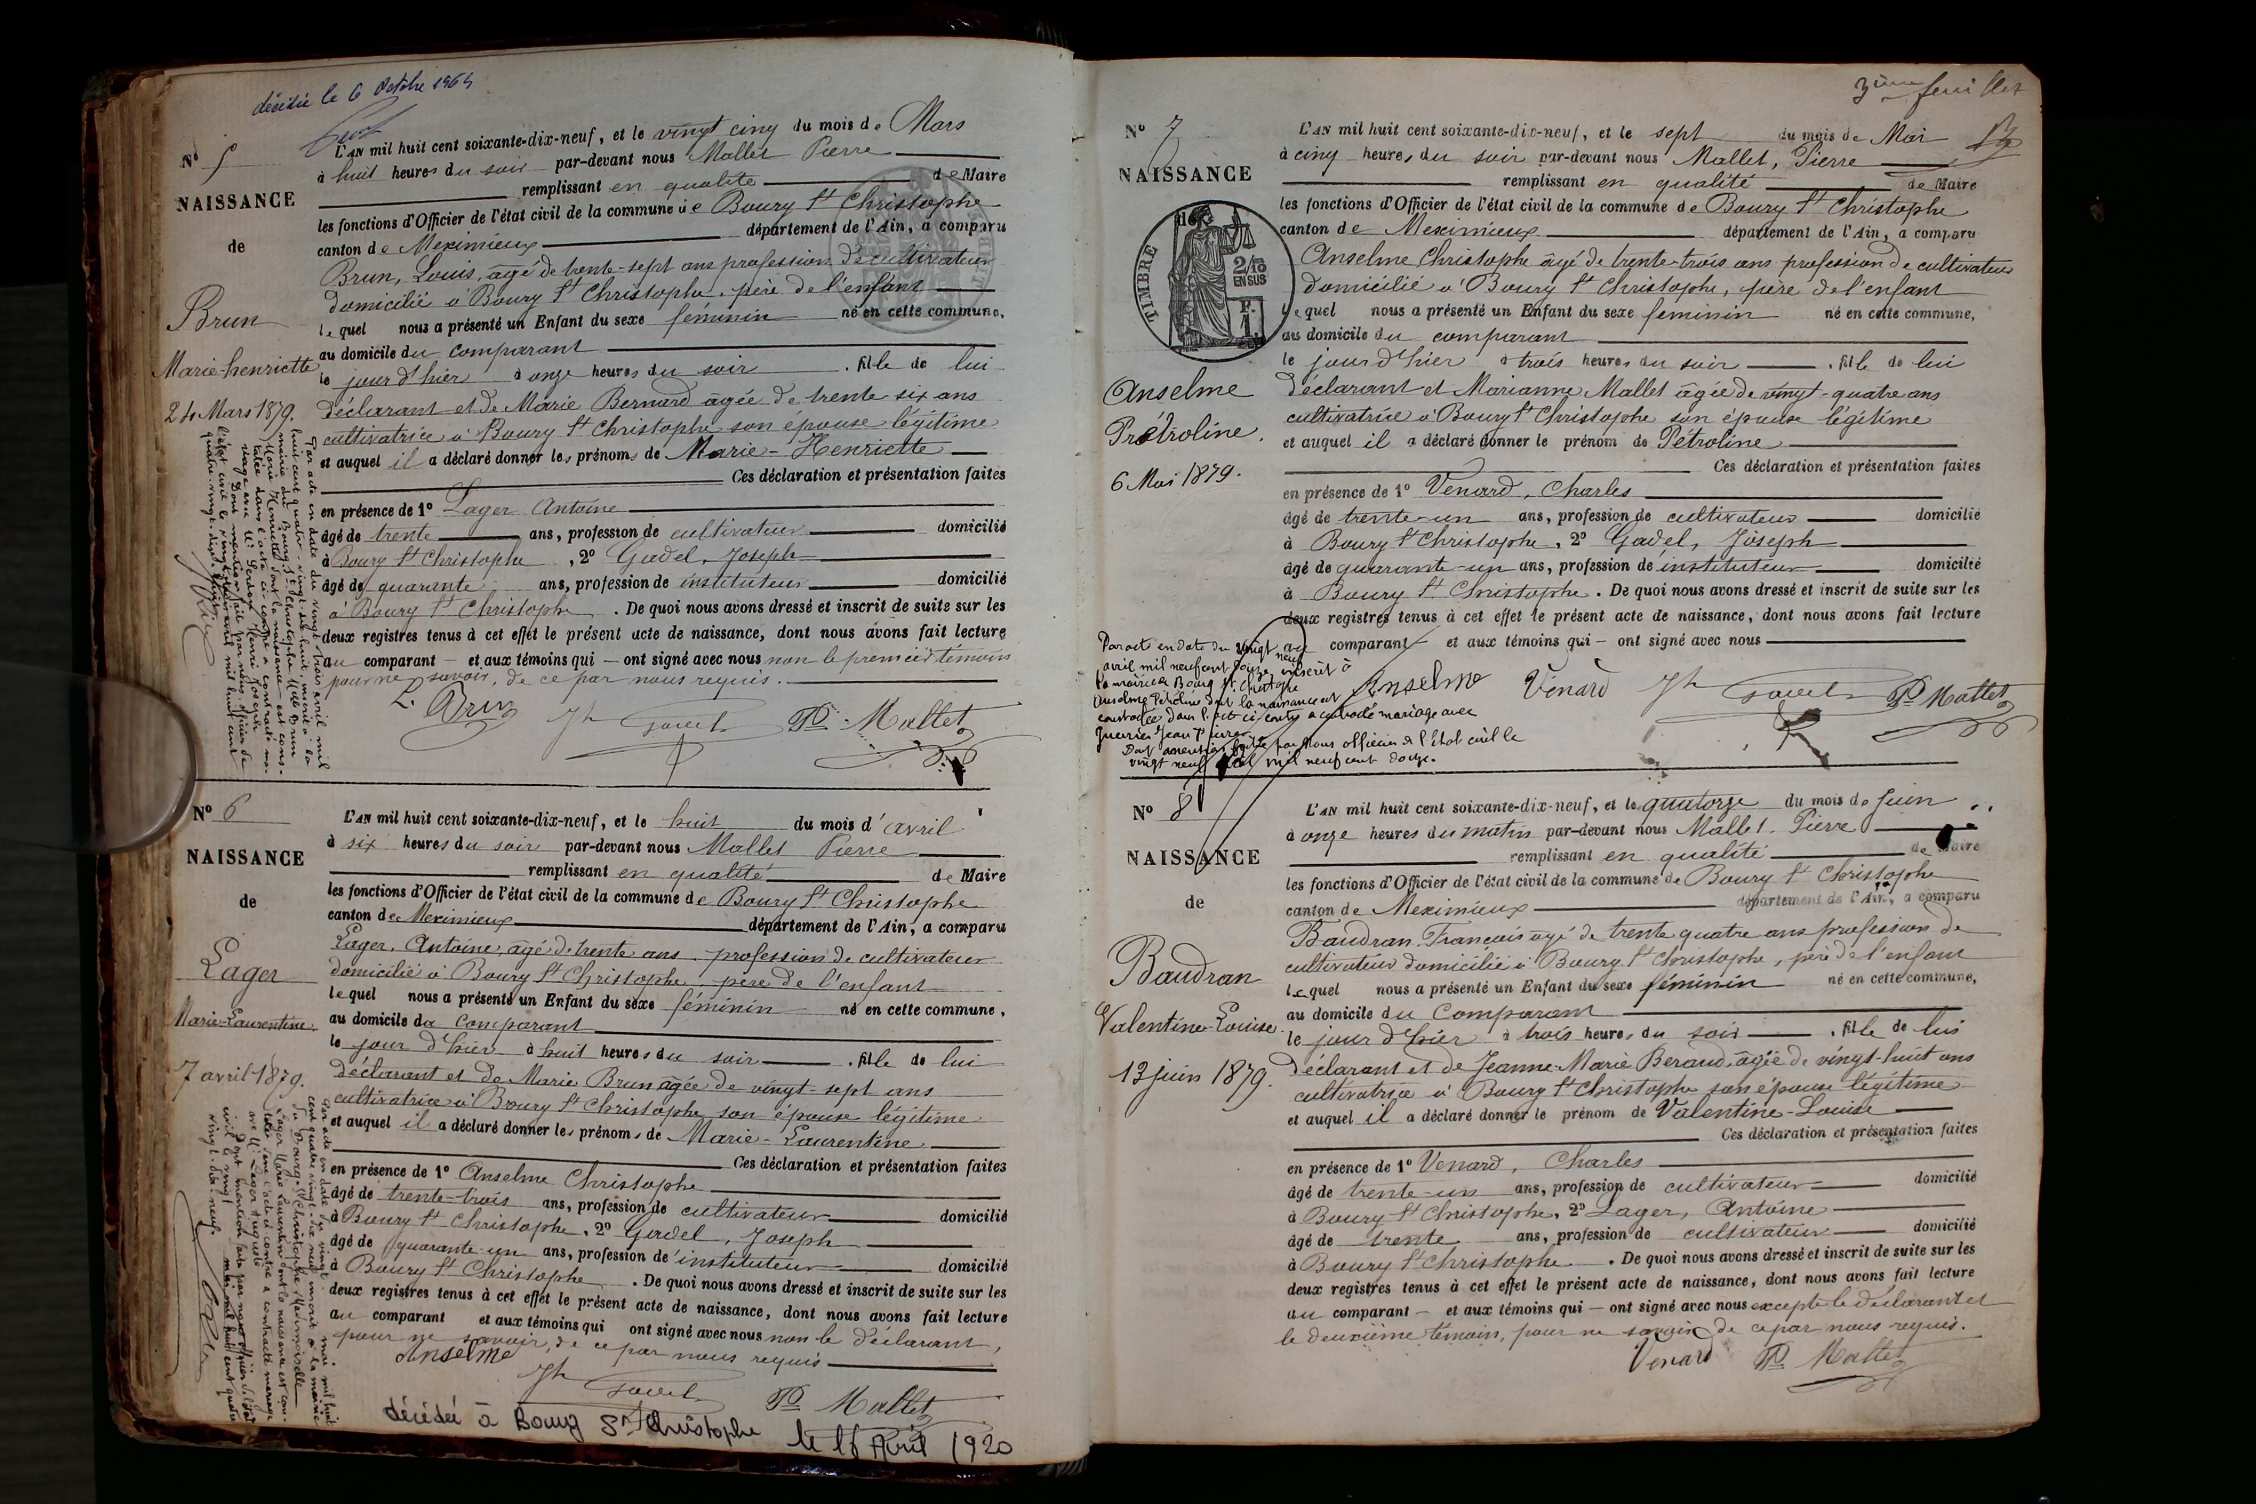 décédée le 6 Octobre 1964
N° 5
NAISSANCE
de
Brun
Marie-henriette
24 Mars 1879.
L'AN mil huit cent soixante-dix-neuf, et le vingt cinq du mois de Mars
à huit heures du soir par-devant nous Mallet Pierre
remplissant en qualité de Maire
les fonctions d'Officier de l'état civil de la commune de Bourg St Christophe
canton de Meximieux département de l'Ain, a comparu
Brun, Louis, âgé de trente-sept ans profession de cultivateur
domicilié à Bourg St Christophe, père de l'enfant
lequel nous a présenté un Enfant du sexe féminin né en cette commune,
au domicile du comparant
le jour d'hier à onze heures du soir, fille de lui
déclarant et de Marie Bernard âgée de trente six ans
cultivatrice à Bourg St Christophe son épouse légitime
et auquel il a déclaré donner les prénoms de Marie-Henriette
Ces déclaration et présentation faites
en présence de 1° Lager Antoine
âgé de trente ans, profession de cultivateur domicilié
à Bourg St Christophe, 2° Gadel, Joseph
âgé de quarante ans, profession de instituteur domicilié
à Bourg St Christophe. De quoi nous avons dressé et inscrit de suite sur les
deux registres tenus à cet effet le présent acte de naissance, dont nous avons fait lecture
au comparant et aux témoins qui ont signé avec nous non le premier témoin
pour ne savoir, de ce par nous requis.
L. Brun
Par acte en date du vingt trois avril mil
huit cent quatre-vingt-dix huit, inscrit à la
mairie du Bourg St Christophe Mlle Brun
Marie Henriette dont la naissance est cons-
tatée dans l'acte ci-contre a contracté ma-
riage avec Mr Henri Joseph
Dont mention faite par nous officier de
l'état civil le avril mil huit cent
quatre-vingt-dix-huit.
Jh Gadel P. Mallet
N° 6
NAISSANCE
de
Lager
Marie-Laurentine.
7 avril 1879.
L'AN mil huit cent soixante-dix-neuf, et le huit du mois d'avril
à six heures du soir par-devant nous Mallet Pierre
remplissant en qualité de Maire
les fonctions d'Officier de l'état civil de la commune de Bourg St Christophe
canton de Meximieux département de l'Ain, a comparu
Lager, Antoine, âgé de trente ans profession de cultivateur
domicilié à Bourg St Christophe, père de l'enfant
lequel nous a présenté un Enfant du sexe féminin né en cette commune,
au domicile du comparant
le jour d'hier à huit heures du soir, fille de lui
déclarant et de Marie Brun âgée de vingt-sept ans
cultivatrice à Bourg St Christophe son épouse légitime
et auquel il a déclaré donner les prénoms de Marie-Laurentine
Ces déclaration et présentation faites
en présence de 1° Anselme Christophe
âgé de trente-trois ans, profession de cultivateur domicilié
à Bourg St Christophe, 2° Gadel, Joseph
âgé de quarante-un ans, profession de instituteur domicilié
à Bourg St Christophe. De quoi nous avons dressé et inscrit de suite sur les
deux registres tenus à cet effet le présent acte de naissance, dont nous avons fait lecture
au comparant et aux témoins qui ont signé avec nous non le déclarant,
pour ne savoir, de ce par nous requis
Par acte en date du vingt mai mil huit
cent quatre-vingt-dix neuf inscrit à la mairie
du Bourg-St Christophe Mademoiselle
Lager Marie Laurentine dont la naissance est cons-
tatée dans l'acte ci contre a contracté mariage
avec Mr Lager Auguste
Dont mention faite par nous officier de l'état
civil le vingt mai mil huit cent quatre
vingt-dix-neuf.
Anselme Jh Gadel P. Mallet
décédée à Bourg St Christophe le 16 Avril 1920
3ème feuillet
N° 7
NAISSANCE
de
TIMBRE
2/10
EN SUS
Anselme
Pétroline.
6 Mai 1879.
L'AN mil huit cent soixante-dix-neuf, et le sept du mois de Mai
à cinq heures du soir par-devant nous Mallet, Pierre
remplissant en qualité de Maire
les fonctions d'Officier de l'état civil de la commune de Bourg St Christophe
canton de Meximieux département de l'Ain, a comparu
Anselme Christophe âgé de trente-trois ans profession de cultivateur
domicilié à Bourg St Christophe, père de l'enfant
lequel nous a présenté un Enfant du sexe féminin né en cette commune,
au domicile du comparant
le jour d'hier à trois heures du soir, fille de lui
déclarant et Marianne Mallet âgée de vingt-quatre ans
cultivatrice à Bourg St Christophe son épouse légitime
et auquel il a déclaré donner le prénom de Pétroline
Ces déclaration et présentation faites
en présence de 1° Venard, Charles
âgé de trente-un ans, profession de cultivateur domicilié
à Bourg St Christophe, 2° Gadel, Joseph
âgé de quarante-un ans, profession de instituteur domicilié
à Bourg St Christophe. De quoi nous avons dressé et inscrit de suite sur les
deux registres tenus à cet effet le présent acte de naissance, dont nous avons fait lecture
au comparant et aux témoins qui ont signé avec nous
Par acte en date du vingt neuf
avril mil neuf cent douze inscrit à
la mairie de Bourg St Christophe
Anselme Pétroline dont la naissance est
constatée dans l'acte ci contre a contracté mariage avec
Guerrier Jean Pierre
Dont mention faite par nous officier de l'état civil le
vingt neuf avril mil neuf cent douze.
Anselme Vénard Jh Gadel P. Mallet
N° 8
NAISSANCE
de
Baudran
Valentine-Louise.
13 juin 1879.
L'AN mil huit cent soixante-dix-neuf, et le quatorze du mois de Juin
à onze heures du matin par-devant nous Mallet, Pierre
remplissant en qualité de Maire
les fonctions d'Officier de l'état civil de la commune de Bourg St Christophe
canton de Meximieux département de l'Ain, a comparu
Baudran, François âgé de trente quatre ans profession de
cultivateur domicilié à Bourg St Christophe, père de l'enfant
lequel nous a présenté un Enfant du sexe féminin né en cette commune,
au domicile du Comparant
le jour d'hier à trois heures du soir, fille de lui
déclarant et de Jeanne-Marie Beraud, âgée de vingt-huit ans
cultivatrice à Bourg St Christophe son épouse légitime
et auquel il a déclaré donner le prénom de Valentine-Louise
Ces déclaration et présentation faites
en présence de 1° Venard, Charles
âgé de trente-un ans, profession de cultivateur domicilié
à Bourg St Christophe, 2° Lager, Antoine
âgé de trente ans, profession de cultivateur domicilié
à Bourg St Christophe. De quoi nous avons dressé et inscrit de suite sur les
deux registres tenus à cet effet le présent acte de naissance, dont nous avons fait lecture
au comparant et aux témoins qui ont signé avec nous excepté le déclarant et
le deuxième témoin, pour ne savoir de ce par nous requis.
Venard P. Mallet